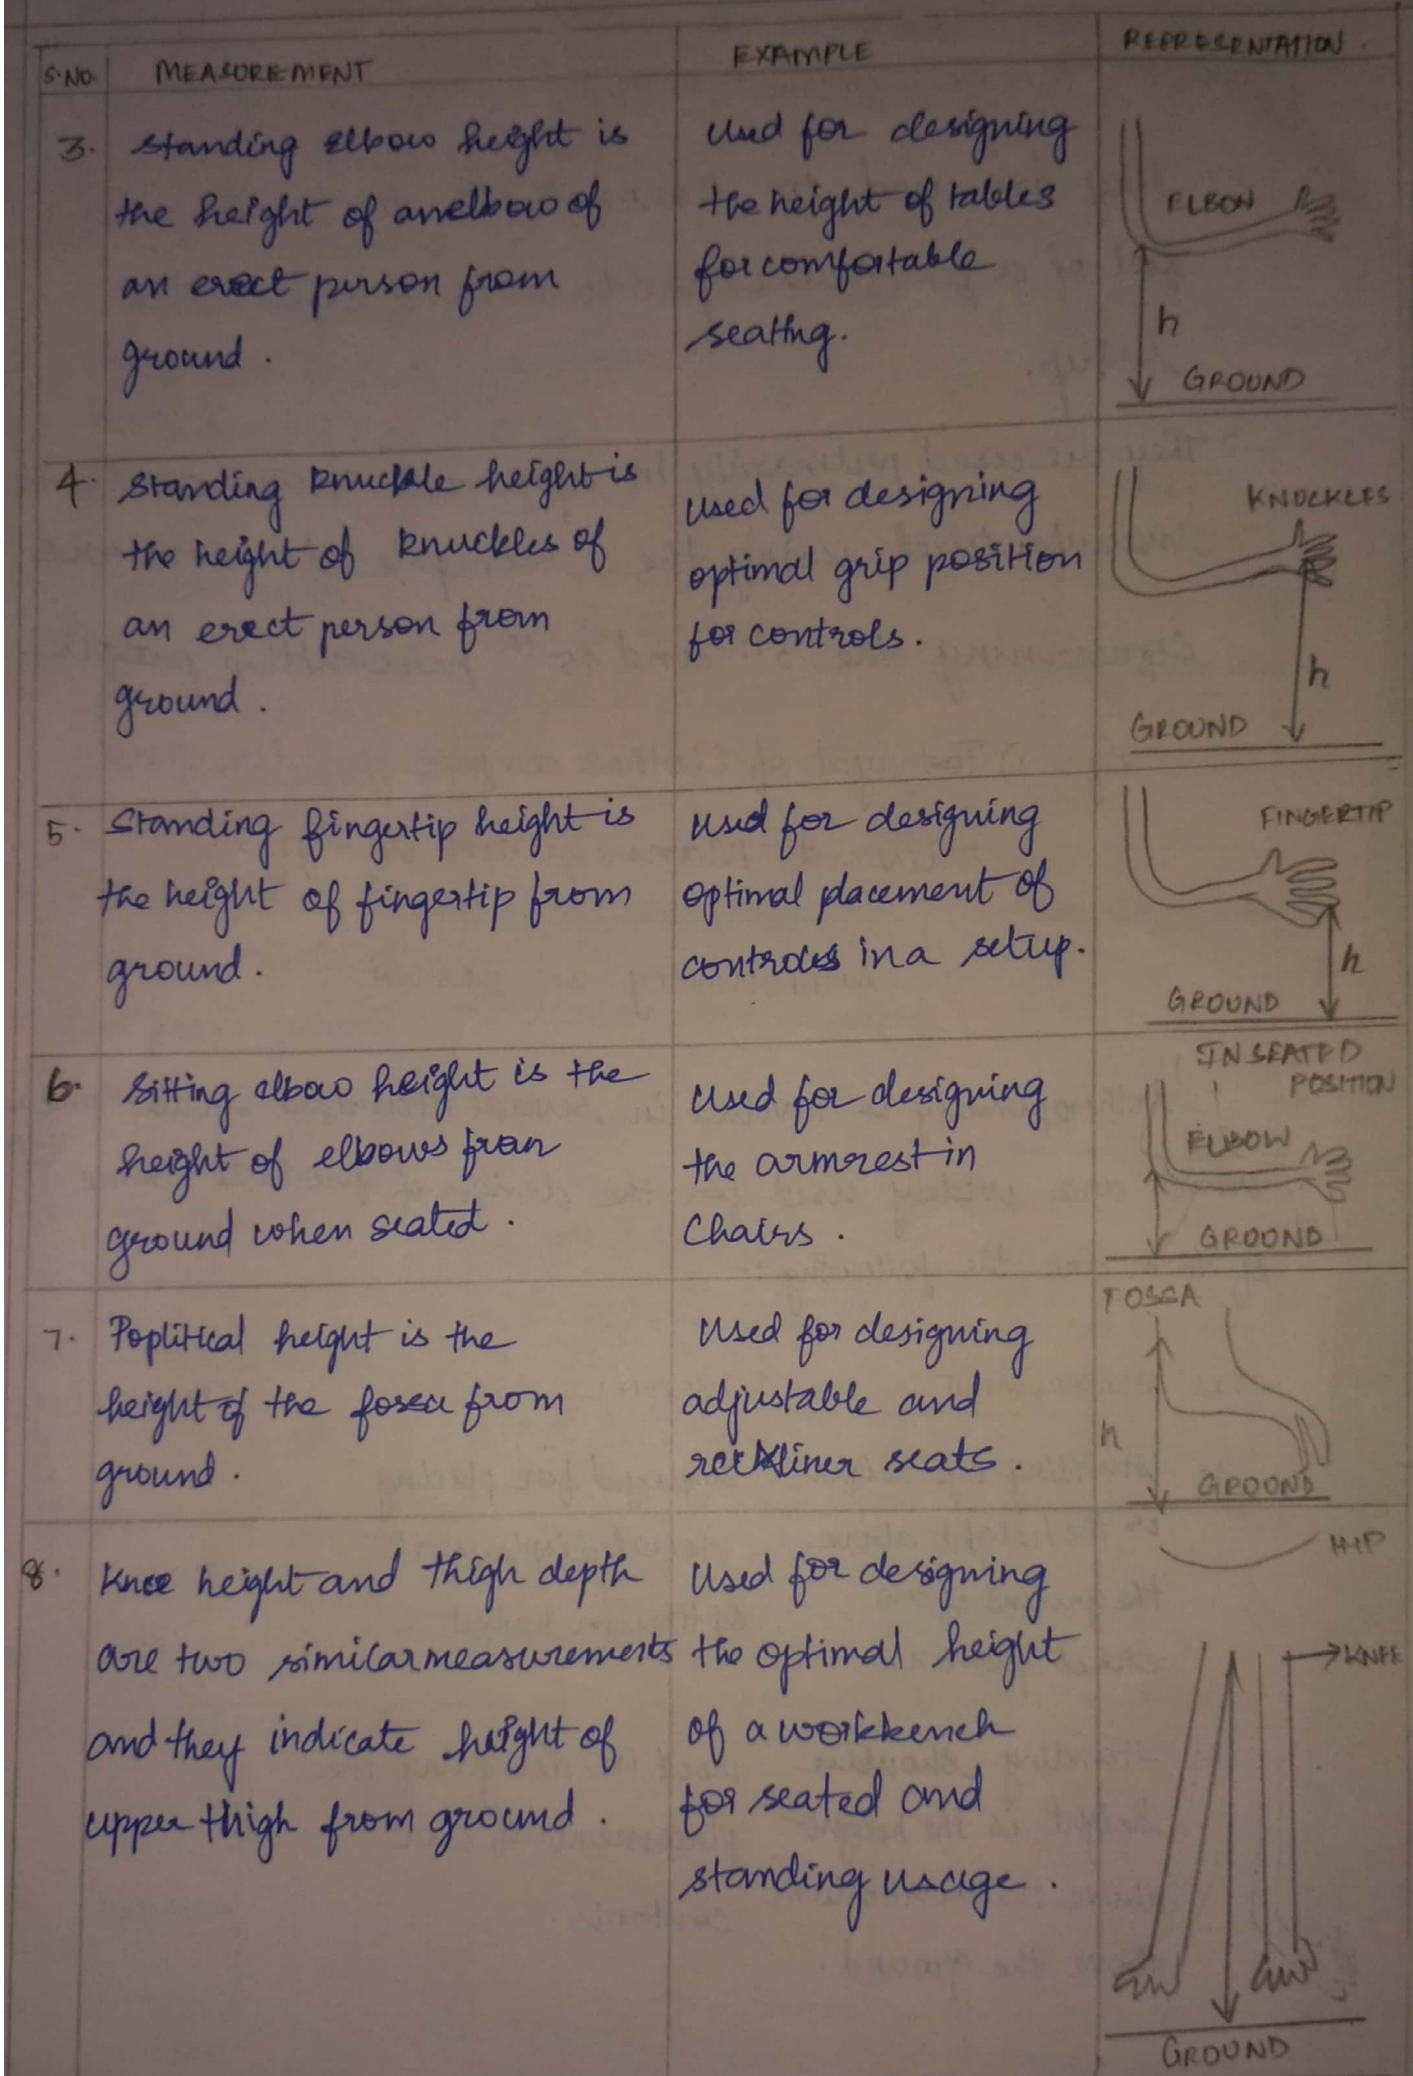 S.NO. MEASUREMENT EXAMPLE REPRESENTATION.
3. Standing elbow height is
the height of anelbow of
an erect person from
ground.
Used for designing
the height of tables
for comfortable
seating.
ELBOW
h
GROUND
4. Standing knuckle height is
the height of knuckles of
an erect person from
ground.
Used for designing
optimal grip position
for controls.
KNUCKLES
h
GROUND
5. Standing fingertip height is
the height of fingertip from
ground.
Used for designing
optimal placement of
controls in a setup.
FINGERTIP
h
GROUND
6. Sitting elbow height is the
height of elbows from
ground when seated.
Used for designing
the armrest in
Chairs.
IN SEATED
POSITION
ELBOW
GROUND
7. Poplitical height is the
height of the fossa from
ground.
Used for designing
adjustable and
seats.
h
GROUND
8. Knee height and thigh depth
are two similar measurements
and they indicate height of
upper thigh from ground.
Used for designing
the optimal height
of a workbench
for seated and
standing usage.
HIP
KNEE
GROUND